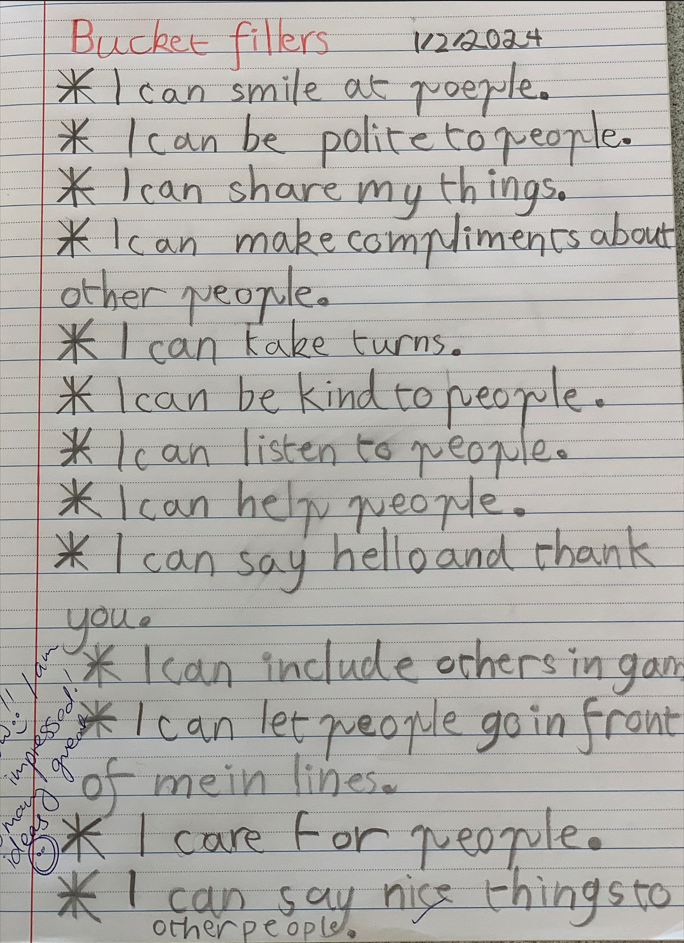 Bucket fillers 1/2/2024
* I can smile at poeple.
* I can be polite to people.
* I can share my things.
* I can make compliments about
other people.
* I can take turns.
* I can be kind to people.
* I can listen to people.
* I can help people.
* I can say hello and thank
you.
* I can include others in gam
* I can let people go in front
of me in lines.
* I care for people.
* I can say nice things to
other people.
!! I am
impressed!
many great
ideas